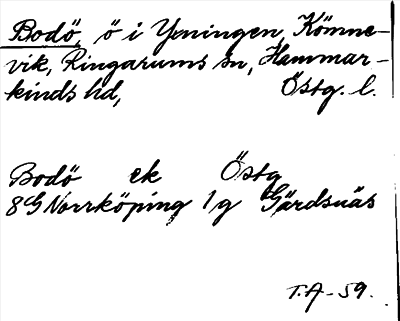 Bodö, ö i Yxningen, Kömne-
vik, Ringarums sn, Hammar-
kinds hd, Östg. l.
Bodö ek Östg
8G Norrköping 1g Gärdsnäs
T.A-59.